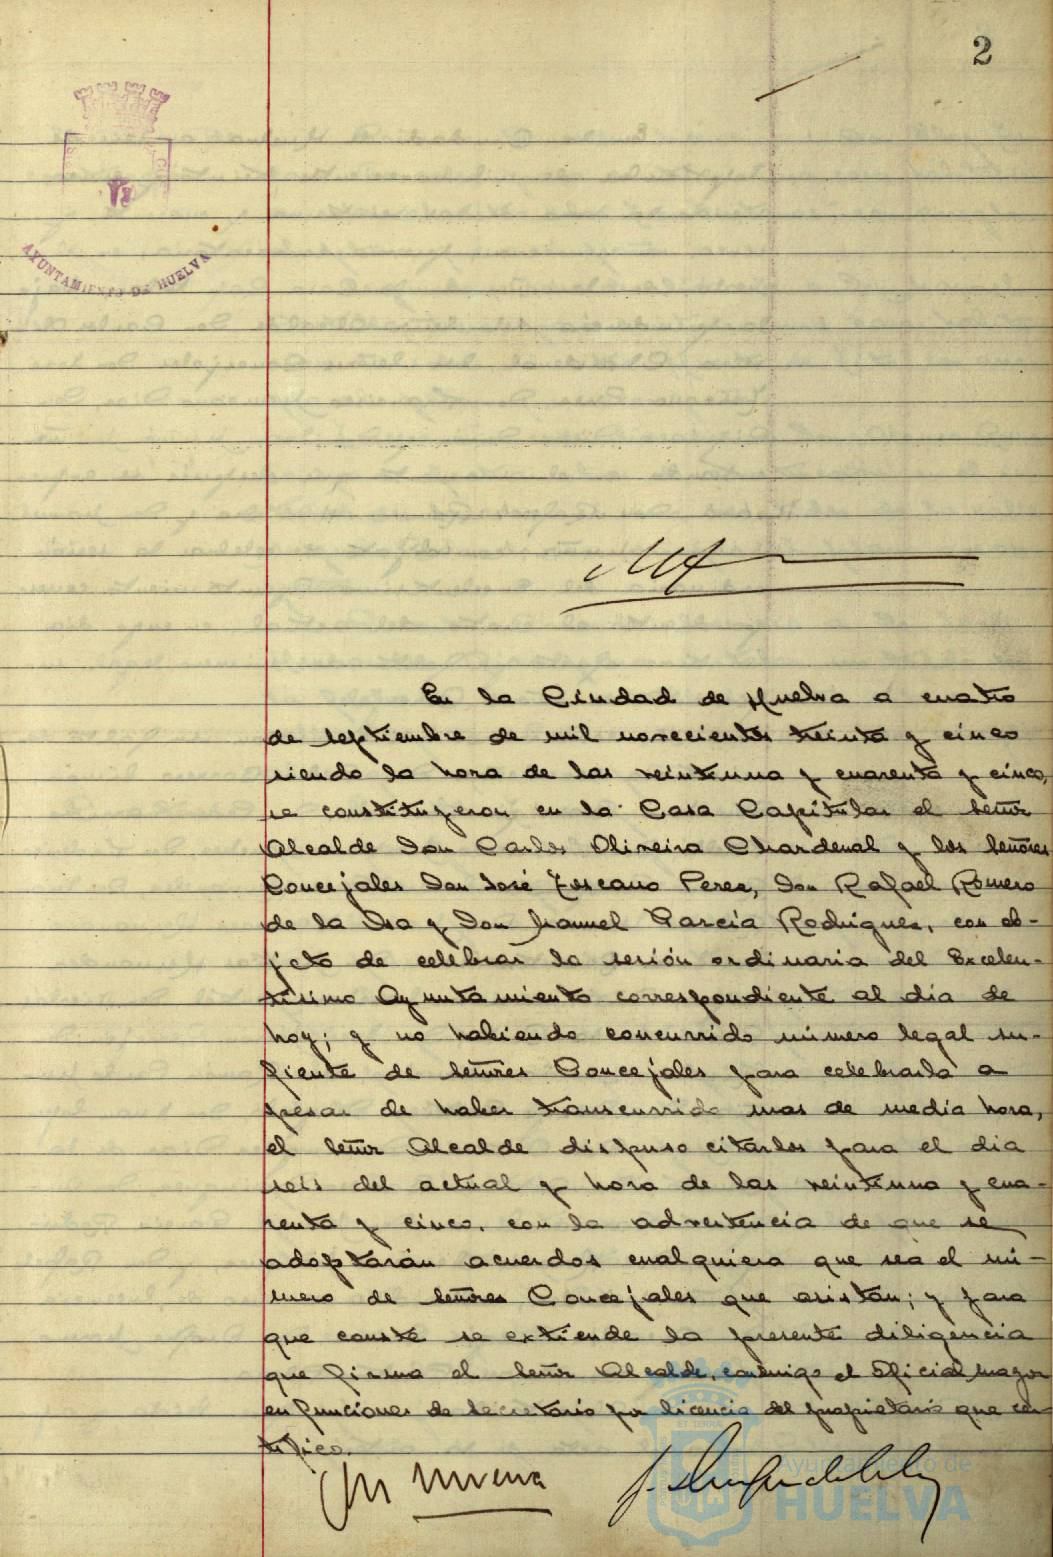 2
AYUNTAMIENTO DE HUELVA
En la Ciudad de Huelva a cuatro
de septiembre de mil novecientos treinta y cinco
siendo la hora de las veintiuna y cuarenta y cinco,
se constituyeron en la Casa Capitular el señor
Alcalde Don Carlos Oliveira Chardenal y los señores
Concejales Don José Toscano Perez, Don Rafael Romero
de la Osa y Don Manuel García Rodriguez, con ob-
jeto de celebrar la sesión ordinaria del Excelen-
tísimo Ayuntamiento correspondiente al día de
hoy; y no habiendo concurrido número legal su-
ficiente de señores Concejales para celebrarla a
pesar de haber transcurrido mas de media hora,
el señor Alcalde dispuso citarlos para el dia
seis del actual y hora de las veintiuna y cua-
renta y cinco, con la advertencia de que se
adoptarán acuerdos cualquiera que sea el nú-
mero de señores Concejales que asistan; y para
que conste se extiende la presente diligencia
que firma el señor Alcalde, conmigo el Oficial mayor
en funciones de Secretario por licencia del propietario que cer-
tifico.
Ayuntamiento de
HUELVA